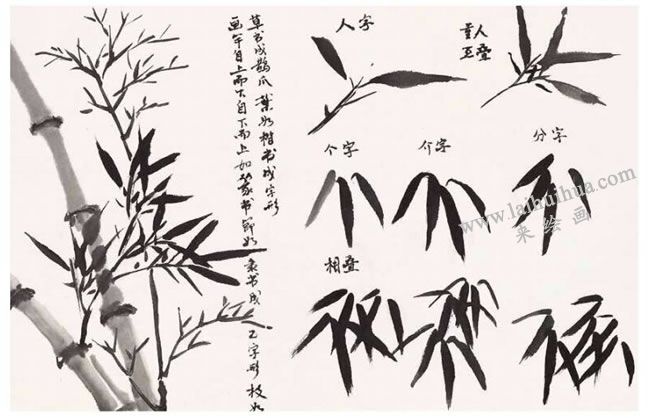 画竿自上而下自下而上如篆书节如隶书成乙字形枝如
草书成鹊爪 葉如楷书成字形
人字
重人
互叠
个字
介字
分字
相叠
www.laihuihua.com
来绘画